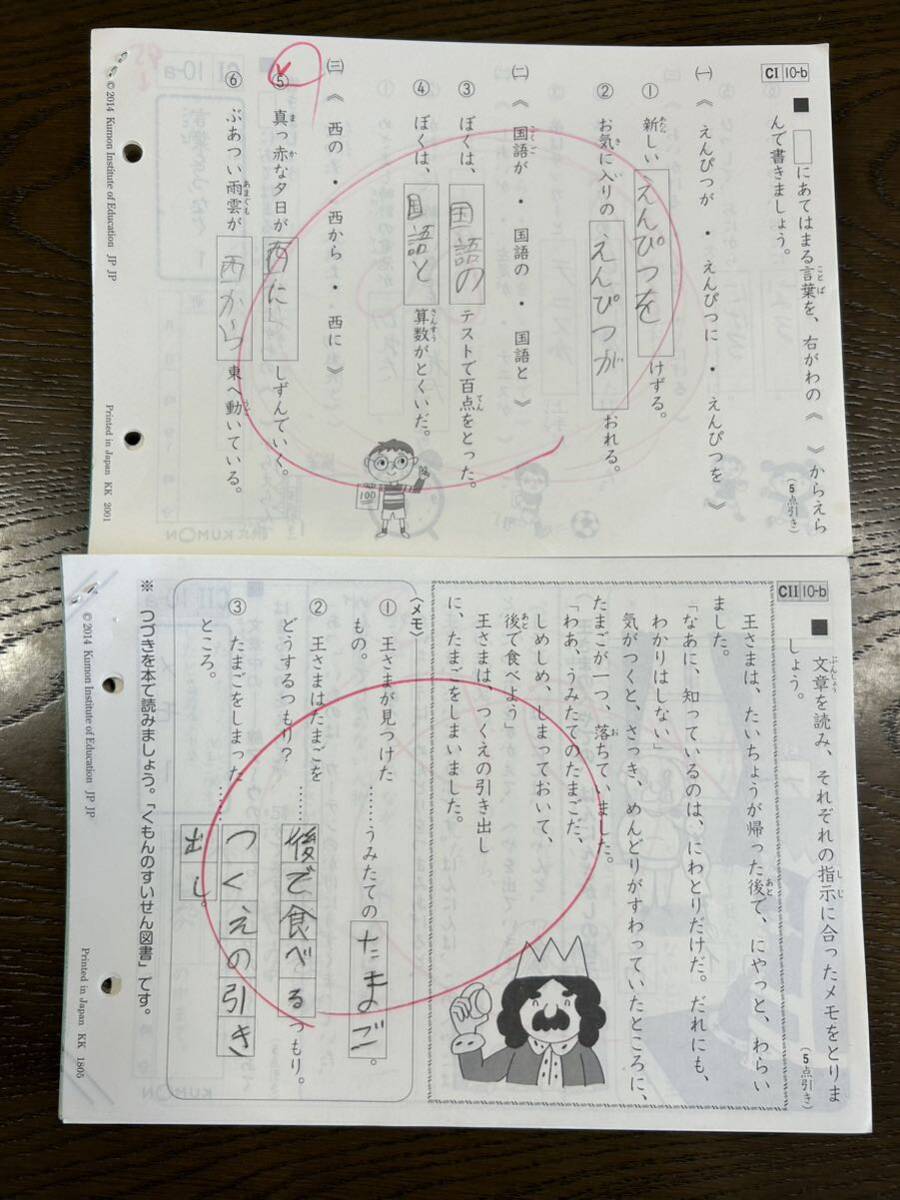 CI 10-b
■ □にあてはまる言葉を、右がわの《 》からえら
んで書きましょう。
(5点引き)
㈠《 えんぴつが・えんぴつに・えんぴつを 》
① 新しい えんぴつを けずる。
② お気に入りの えんぴつが おれる。
㈡《 国語が・国語の・国語と 》
③ ぼくは、 国語の テストで百点をとった。
④ ぼくは、 国語と 算数がとくいだ。
100
㈢《 西の・西から・西に 》
⑤ 真っ赤な夕日が 西に しずんでいく。
⑥ ぶあつい雨雲が 西から 東へ動いている。
© 2014 Kumon Institute of Education JP JP
Printed in Japan KK 2001
CII 10-b
■ 文章を読み、それぞれの指示に合ったメモをとりま
しょう。
(5点引き)
王さまは、たいちょうが帰った後で、にやっと、わらい
ました。
「なあに、知っているのは、にわとりだけだ。だれにも、
わかりはしない」
気がつくと、さっき、めんどりがすわっていたところに、
たまごが一つ、落ちていました。
「わあ、うみたてのたまごだ、
しめしめ、しまっておいて、
後で食べよう」
王さまは、つくえの引き出し
に、たまごをしまいました。
(メモ)
① 王さまが見つけた……うみたての たまご。
もの。
② 王さまはたまごを……後で食べる つもり。
どうするつもり?
③ たまごをしまった……つくえの引き
ところ。 出し。
※ つづきを本で読みましょう。「くもんのすいせん図書」です。
© 2014 Kumon Institute of Education JP JP
Printed in Japan KK 1805